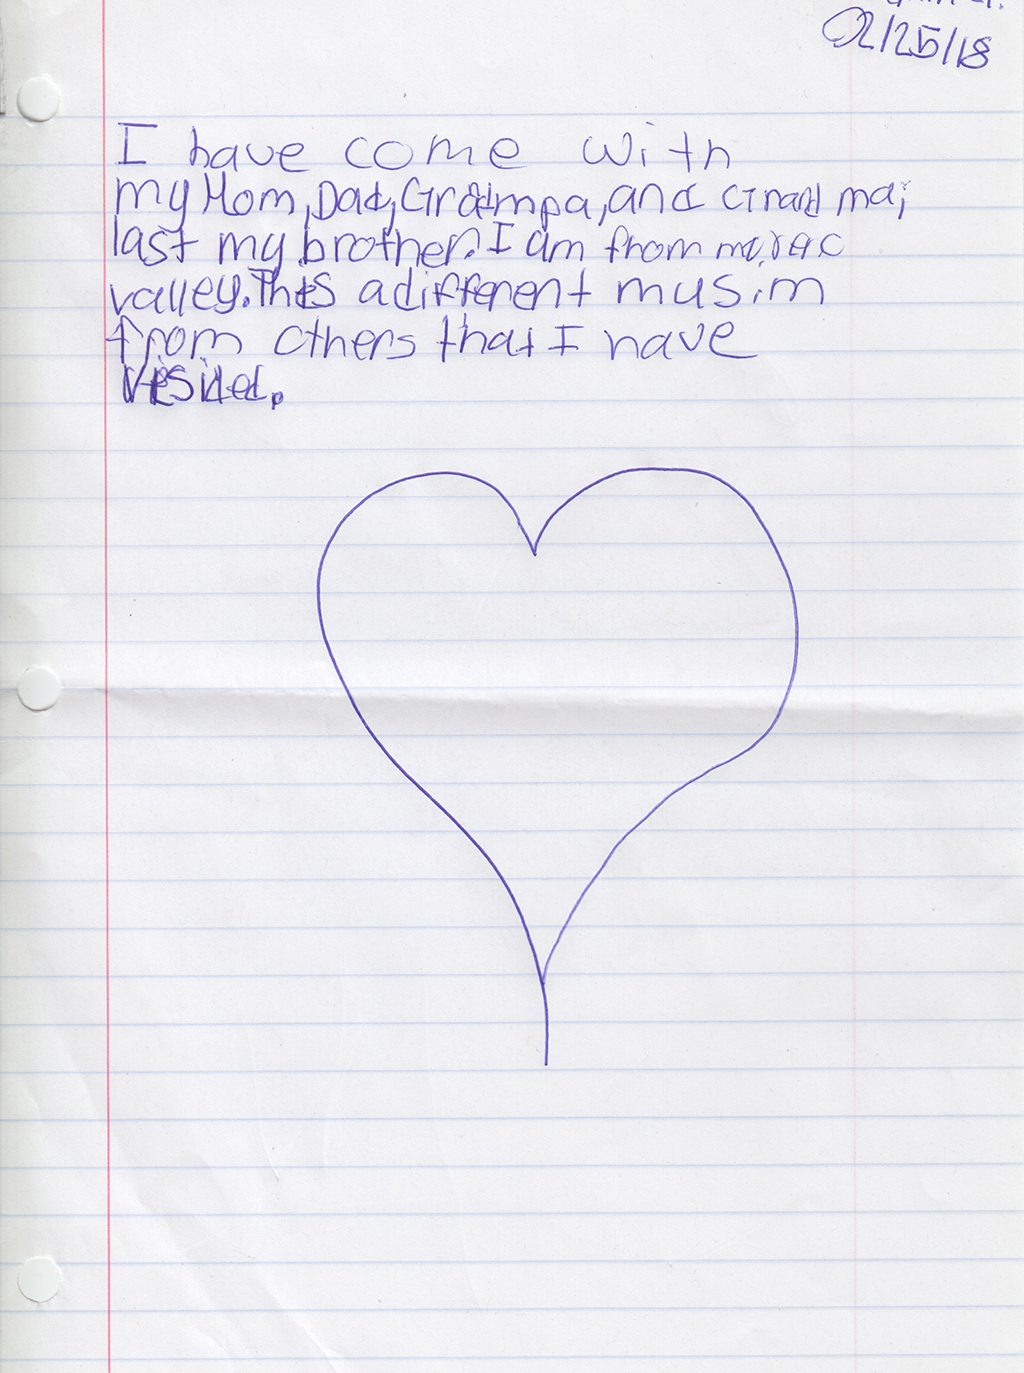 02/25/18
I have come with
my Mom, Dad, Grandmpa, and Grand ma,
last my brother. I am from
valley. This a different musim
from others that I have
visided.